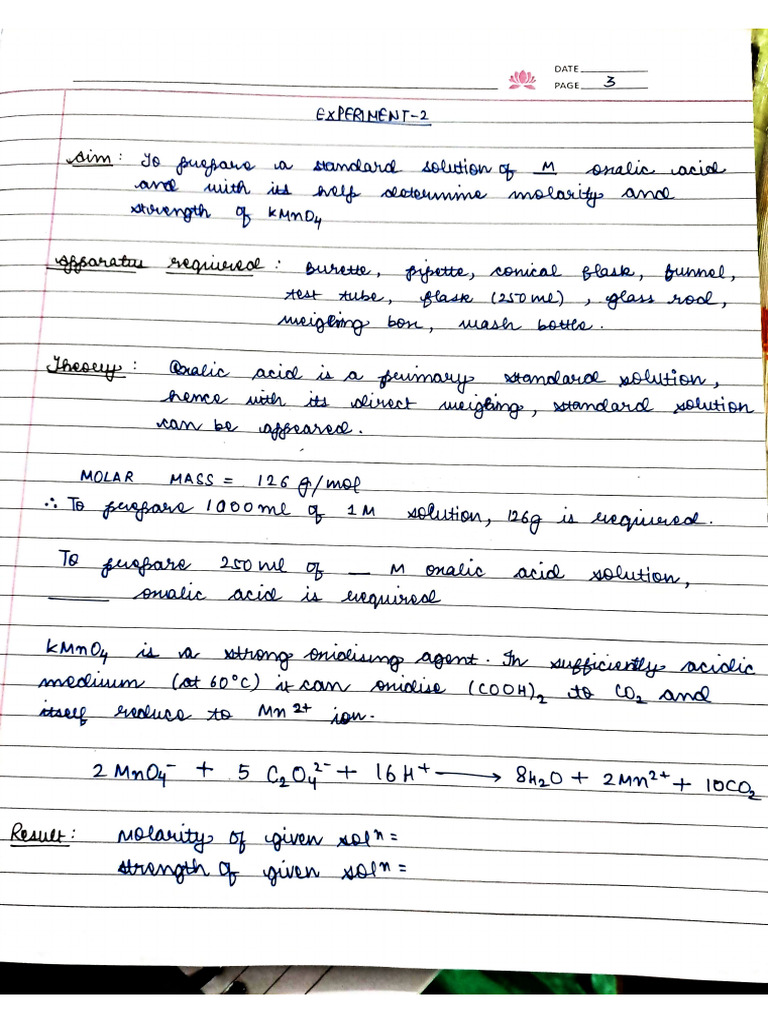 DATE
PAGE 3
EXPERIMENT-2
Aim : To prepare a standard solution of __ M oxalic acid
and with its help determine molarity and
strength of KMnO₄
Apparatus required : Burette, pipette, conical flask, funnel,
test tube, flask (250 ml) , glass rod,
weighing box, wash bottle.
Theory : Oxalic acid is a primary standard solution,
hence with its direct weighing, standard solution
can be appeared.
MOLAR MASS = 126 g/mol
∴ To prepare 1000 ml of 1M solution, 126g is required.
To prepare 250 ml of __ M oxalic acid solution,
____ oxalic acid is required
KMnO₄ is a strong oxidising agent. In sufficiently acidic
medium (at 60°C) it can oxidise (COOH)₂ to CO₂ and
itself reduce to Mn²⁺ ion.
2 MnO₄⁻ + 5 C₂O₄²⁻ + 16H⁺ → 8H₂O + 2Mn²⁺ + 10CO₂
Result : Molarity of given solⁿ =
strength of given solⁿ =